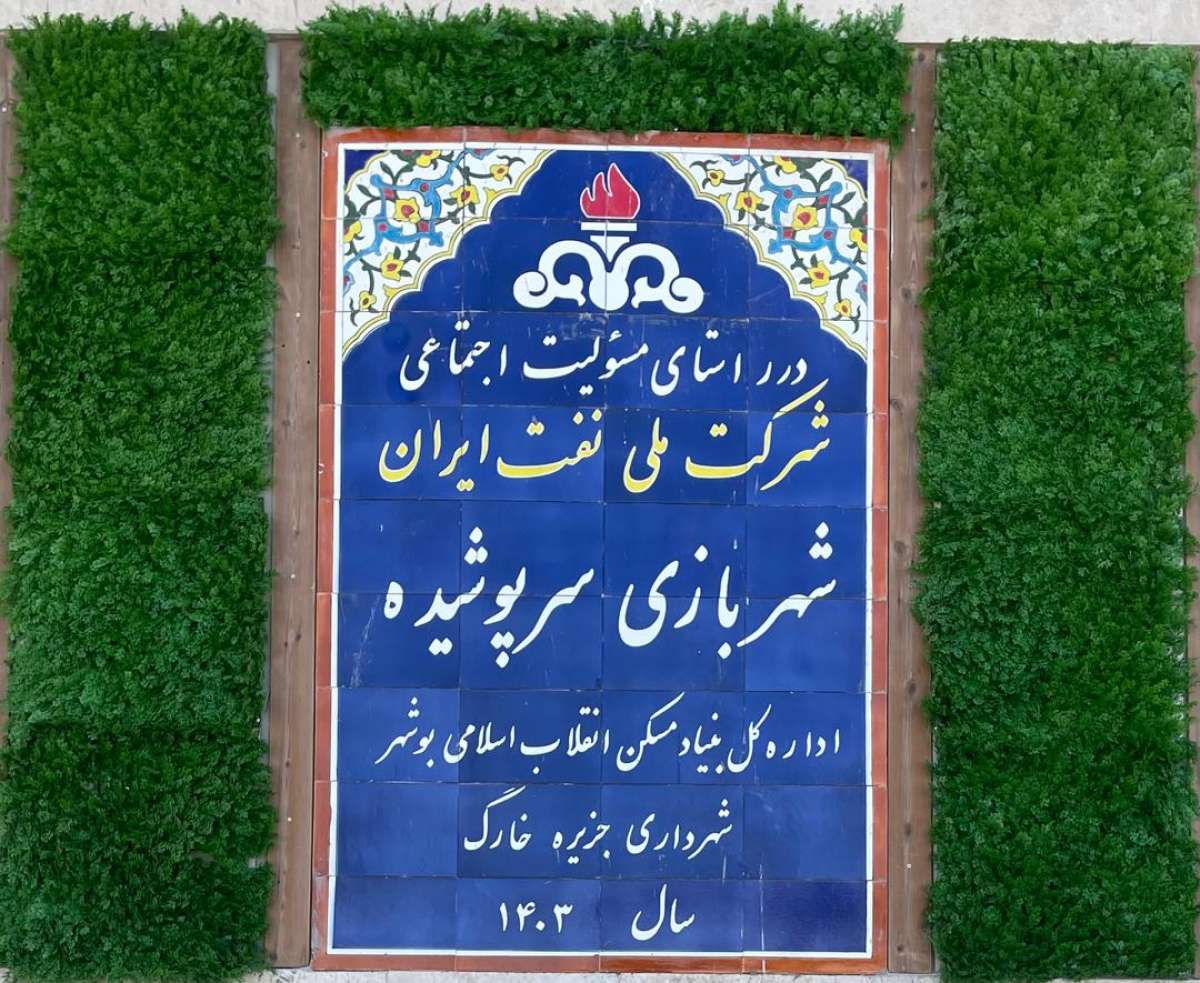 در راستای مسئولیت اجتماعی
شرکت ملی نفت ایران
شهربازی سرپوشیده
اداره کل بنیاد مسکن انقلاب اسلامی بوشهر
شهرداری جزیره خارگ
سال ۱۴۰۳